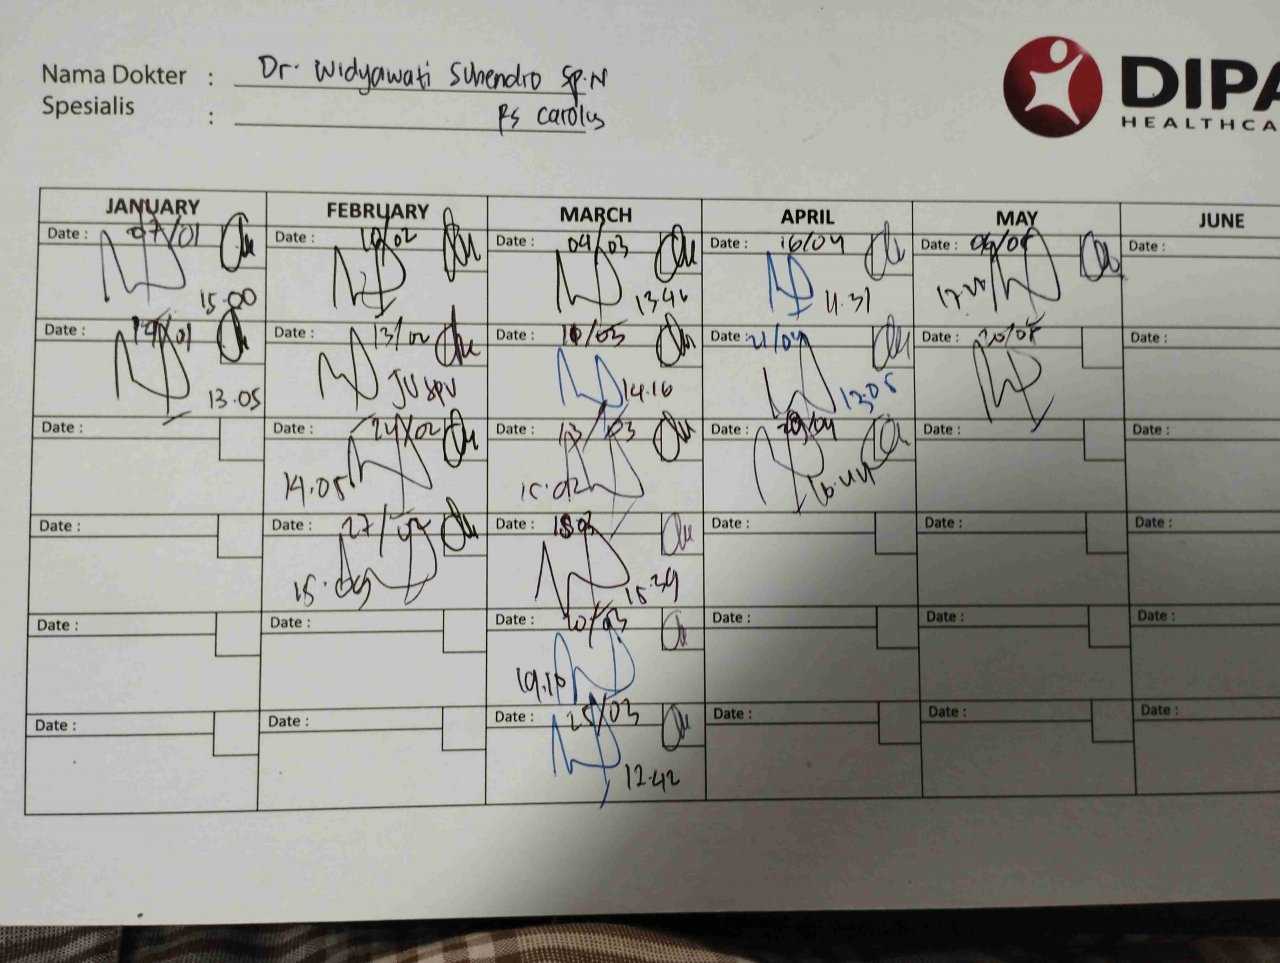 Nama Dokter : Dr. Widyawati Suhendro Sp.N
Spesialis : Rs Carolus
DIPA
HEALTHCA
JANUARY FEBRUARY MARCH APRIL MAY JUNE
Date : 07/01 Date : 10/02 Date : 04/03 Date : 16/04 Date : Date :
15.00 13.46 11.37
Date : 14/01 Date : 13/02 Date : 10/03 Date : 21/04 Date : 20/05 Date :
13.05 14.16 13.05
Date : Date : 24/02 Date : 13/03 Date : 29/04 Date : Date :
14.05 15.02 16.44
Date : Date : 27/02 Date : 18/03 Date : Date : Date :
15.09 15.39
Date : Date : Date : 20/03 Date : Date : Date :
19.10
Date : Date : Date : 25/03 Date : Date : Date :
12.42